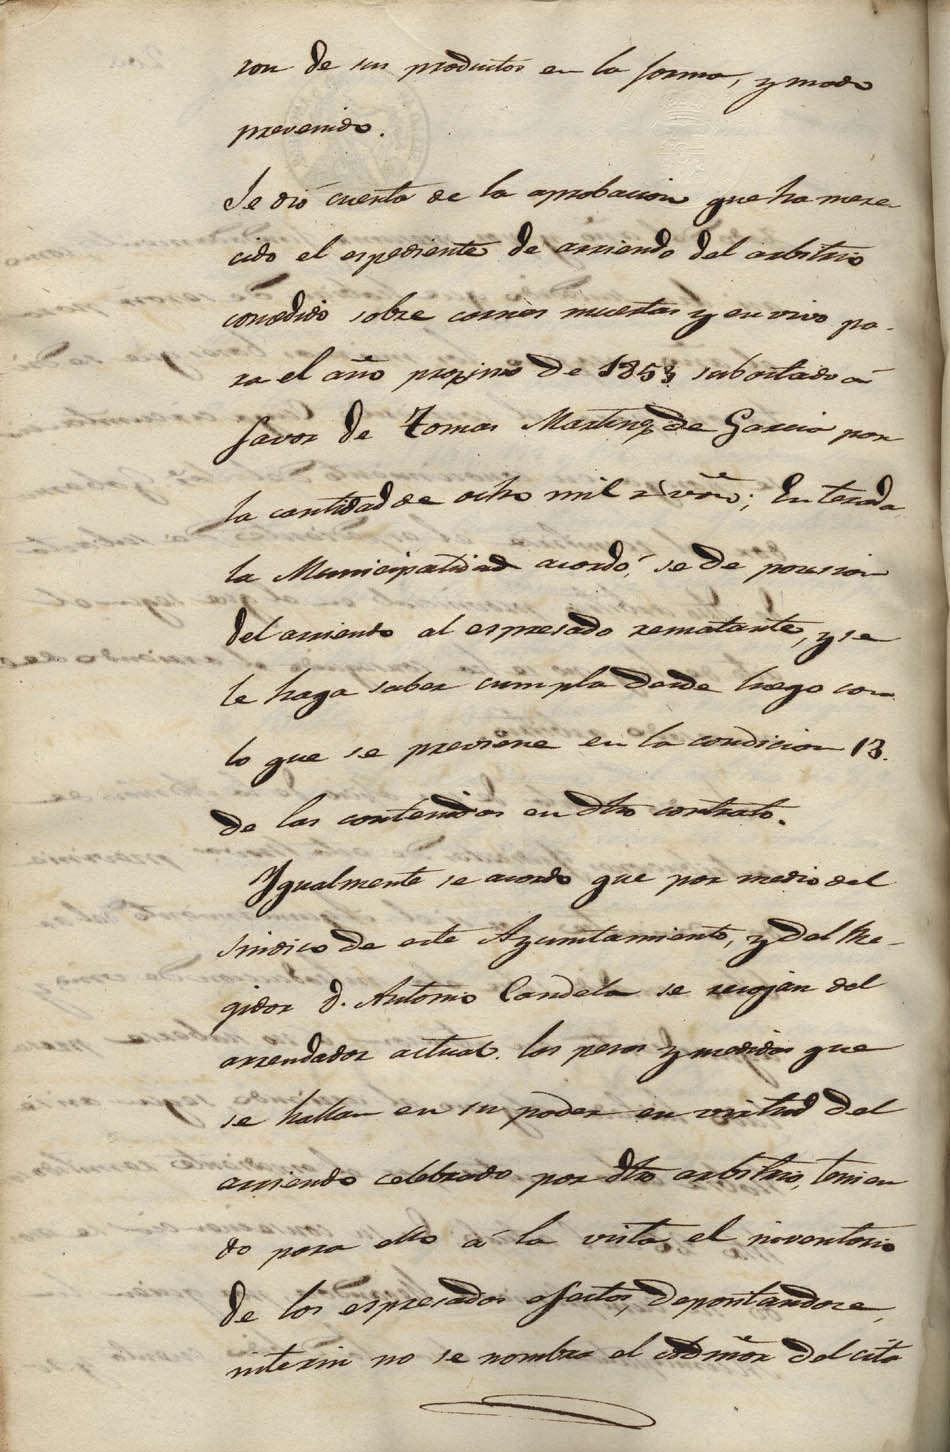 ron de sus productos en la forma, y modo
prevenido.
Se dió cuenta de la aprobacion que ha mere-
cido el espediente de arriendo del arbitrio
concedido sobre carnes muertas y en vivo pa-
ra el año proximo de 1853 subastado á
favor de Tomas Martinez de Garcia por
la cantidad de ocho mil r.^s v.^n; Enterada
la Municipalidad acordó, se de posesion
del arriendo al espresado rematante, y se
le haga saber cumpla desde luego con
lo que se previene en la condicion 13.
de las contenidas en dho contrato.
Igualmente se acordo que por medio del
sindico de este Ayuntamiento, y del Re-
gidor D. Antonio Candela se recojan del
arrendador actual los pesos y medidas que
se hallan en su poder en virtud del
arriendo celebrado por dho arbitrio, tenien
do para ello á la vista el inventario
de los espresados efectos, depositandose,
interin no se nombra el Admór del cita